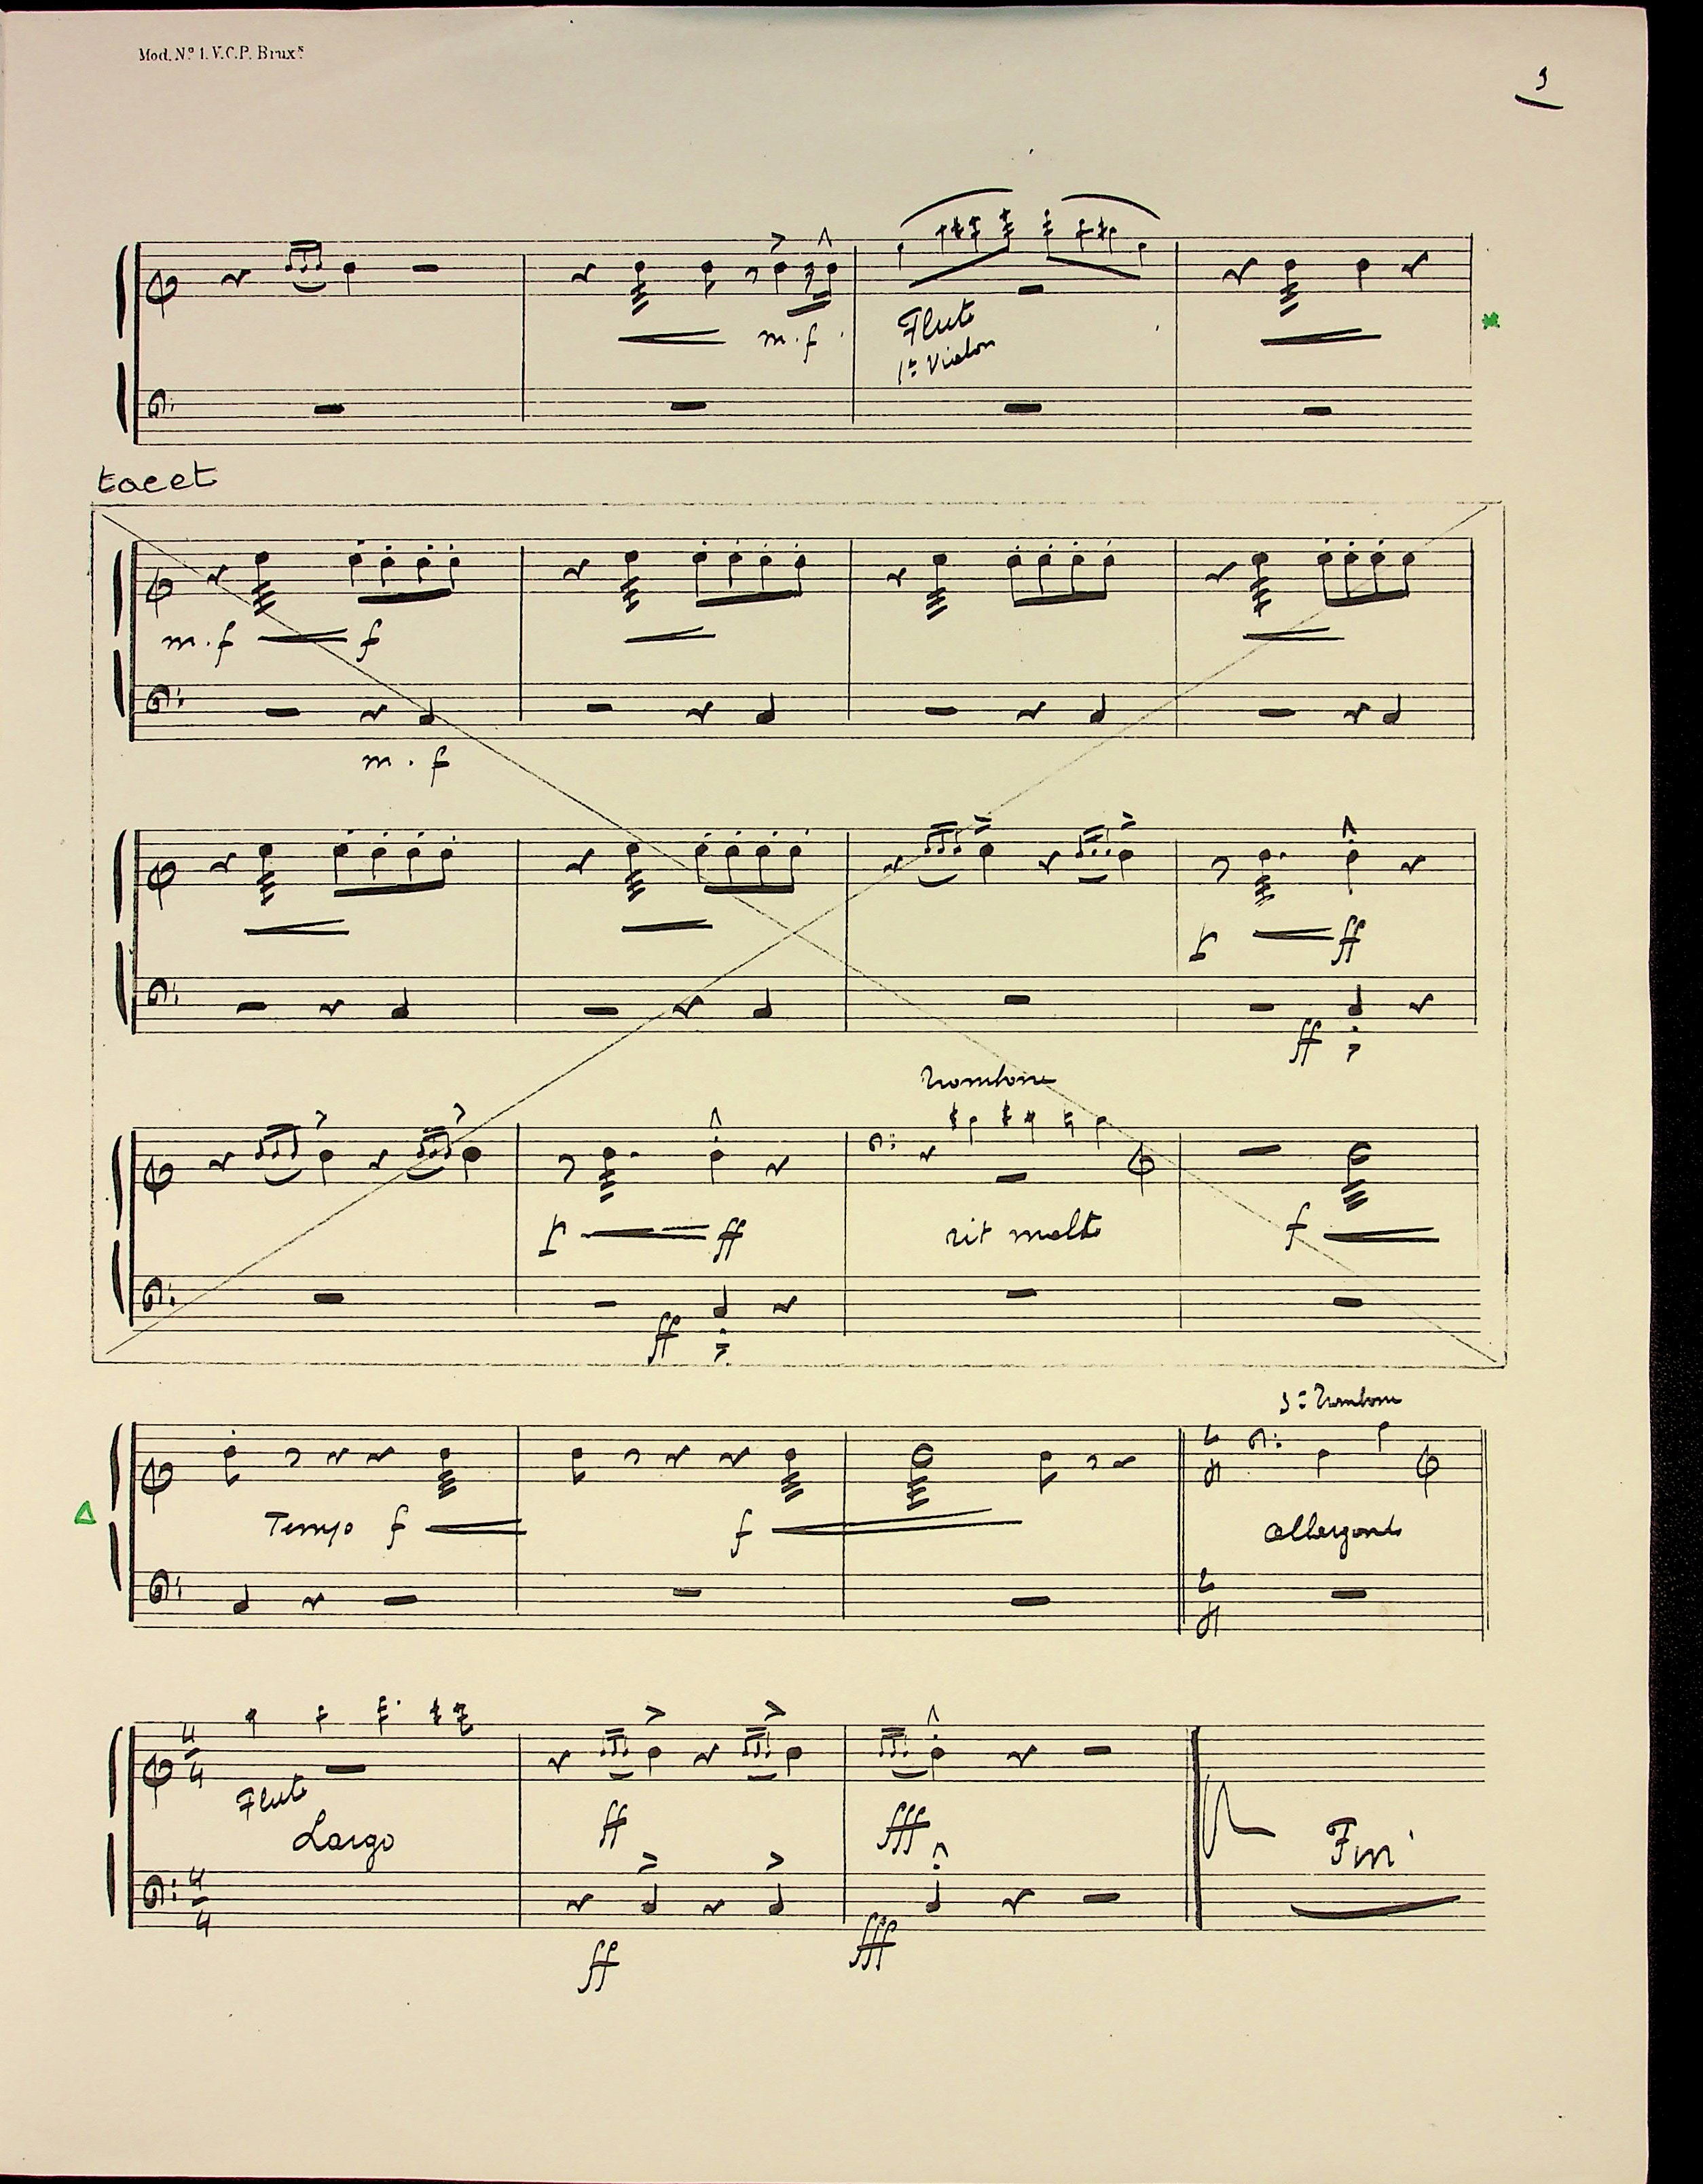 Mod. Nº 1. V.C.P. Bruxs
m.f
Flute
1er Violon
tacet
m.f f
m.f
p ff
ff
Trombone
p ff rit molto f
ff
3e Trombone
Tempo f f allargando
Flute
Largo ff fff Fin
ff fff